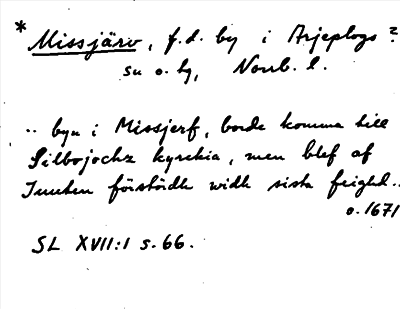 * Missjärv, f.d. by i Arjeplogs?
sn o. hg, Norrb. l.
.. byn i Missjerf, borde komma till
Silbojochz kyrckia, men blef af
Juuten förstödh widh sista feighd..
o. 1671
SL XVII:1 s. 66.